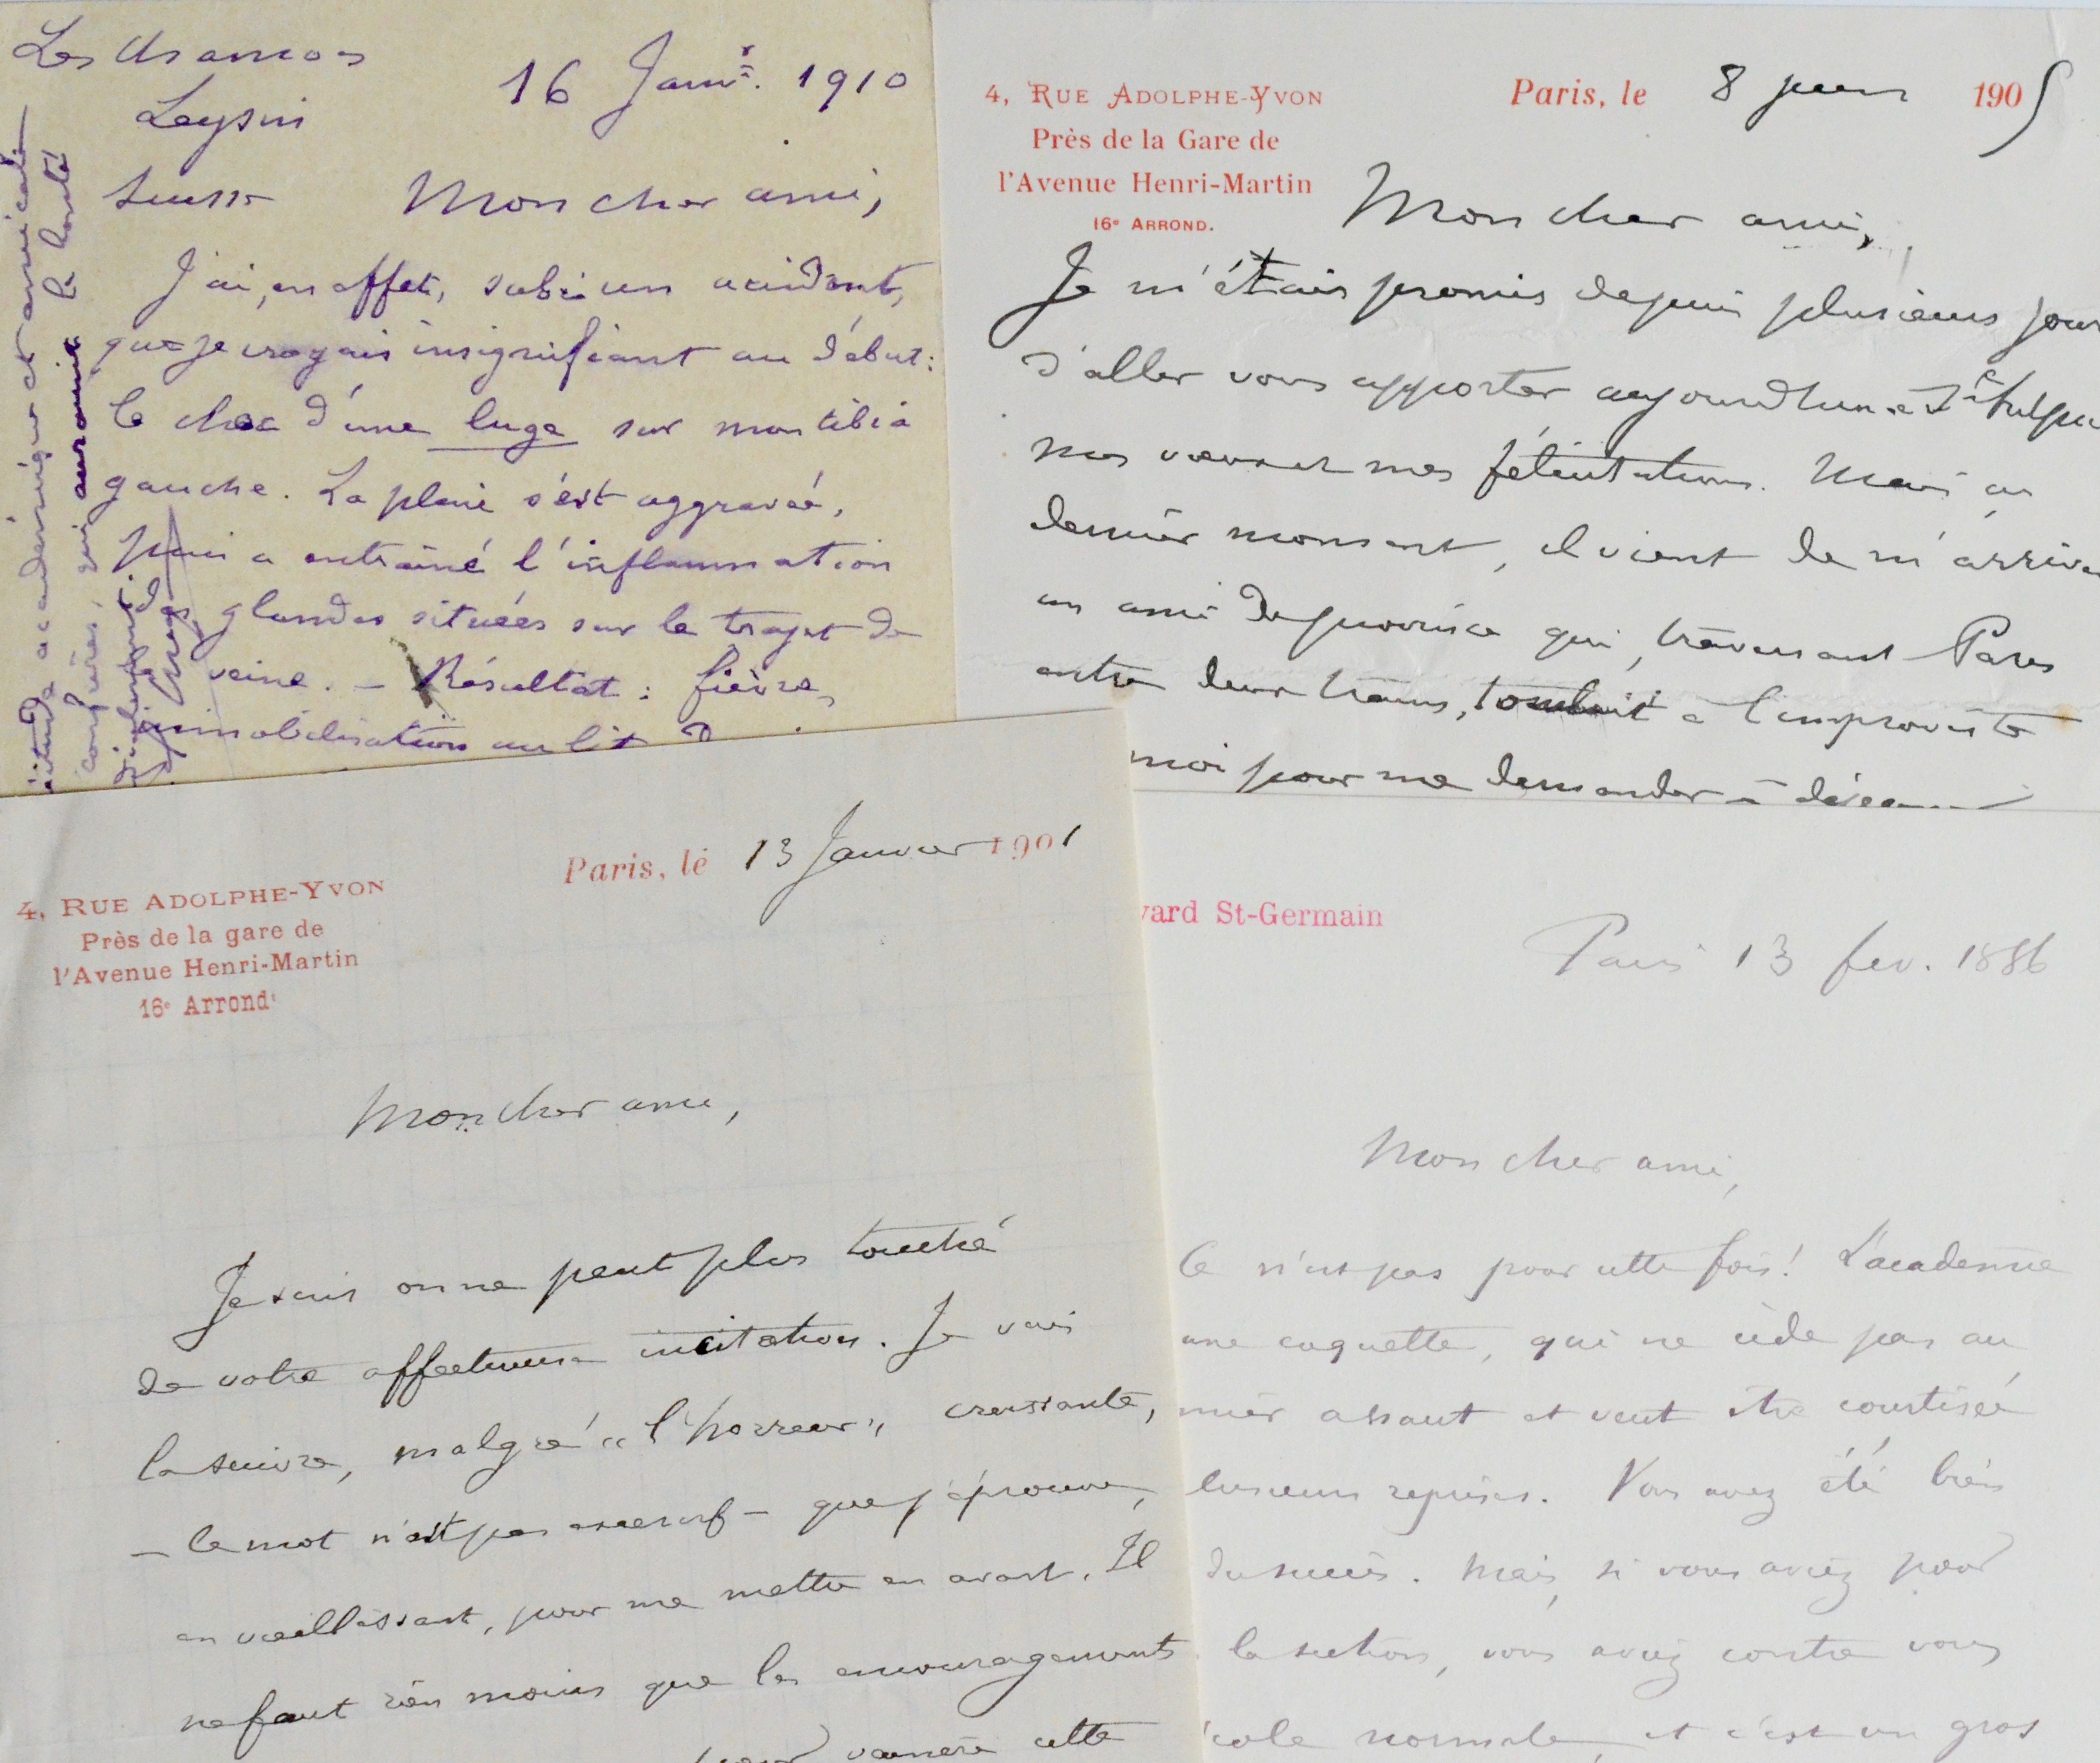 Les Chamois
Leysin
Suisse
16 Janv. 1910
Mon cher ami,
J'ai, en effet, subi un accident,
que je croyais insignifiant au début :
le choc d'une luge sur mon tibia
gauche. La plaie s'est aggravée,
puis a entraîné l'inflammation
des glandes situées sur le trajet de
veine. — Résultat : fièvre,
immobilisation au lit
académique et amicale
confrères, qui auront la bonté
4, RUE ADOLPHE-YVON
Près de la Gare de
l'Avenue Henri-Martin
16e ARROND.
Paris, le 8 juin 1905
Mon cher ami,
Je m'étais promis depuis plusieurs jour
d'aller vous apporter aujourd'hui
mes vœux et mes félicitations. Mais au
dernier moment, il vient de m'arriver
un ami de province qui, traversant Paris
entre deux trains, tombait à l'improviste
moi pour me demander à déjeuner
4, RUE ADOLPHE-YVON
Près de la gare de
l'Avenue Henri-Martin
16e Arrondt
Paris, le 13 Janvier 1901
Mon cher ami,
Je suis on ne peut plus touché
de votre affectueuse incitation. Je vais
la suivre, malgré "l'horreur" croissante,
— le mot n'est pas excessif — que j'éprouve,
en vieillissant, pour me mettre en avant. Il
ne faut rien moins que les encouragements
pour vaincre cette
vard St-Germain
Paris 13 fev. 1886
Mon cher ami,
Ce n'est pas pour cette fois ! L'académie
une coquette, qui ne cède pas au
mier assaut et veut être courtisée
lusieurs reprises. Vous avez été bien
du succès. Mais, si vous aviez pour
la section, vous aviez contre vous
école normale, et c'est un gros